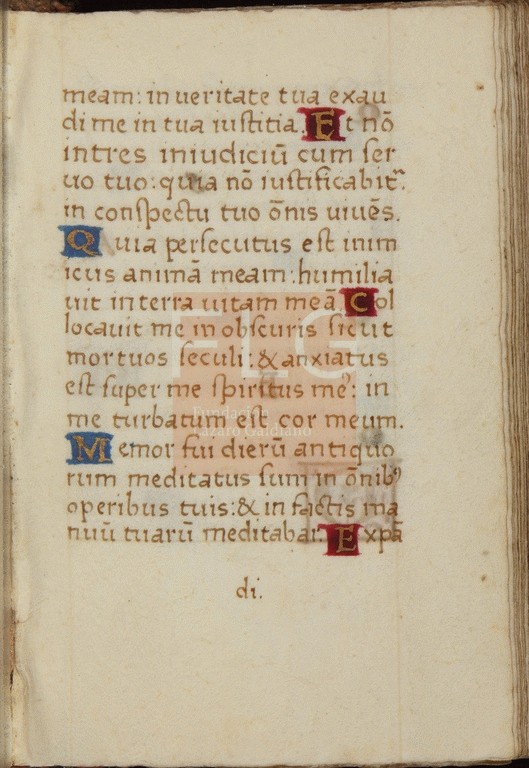 meam: in ueritate tua exau
di me in tua iustitia. Et nō
intres in iudiciū cum ser
uo tuo: quia nō iustificabit᷑.
in conspectu tuo ōnis uiuēs.
Quia persecutus est inim
icus animā meam: humilia
uit in terra uitam meā. Col
locauit me in obscuris sicut
mortuos seculi: & anxiatus
est super me spiritus meꝰ: in
me turbatum est cor meum.
Memor fui dierū antiquo
rum meditatus sum in ōnibꝰ
operibus tuis: & in factis ma
nuū tuarū meditabar. Expā
di.
FLG
Fundación
Lázaro Galdiano